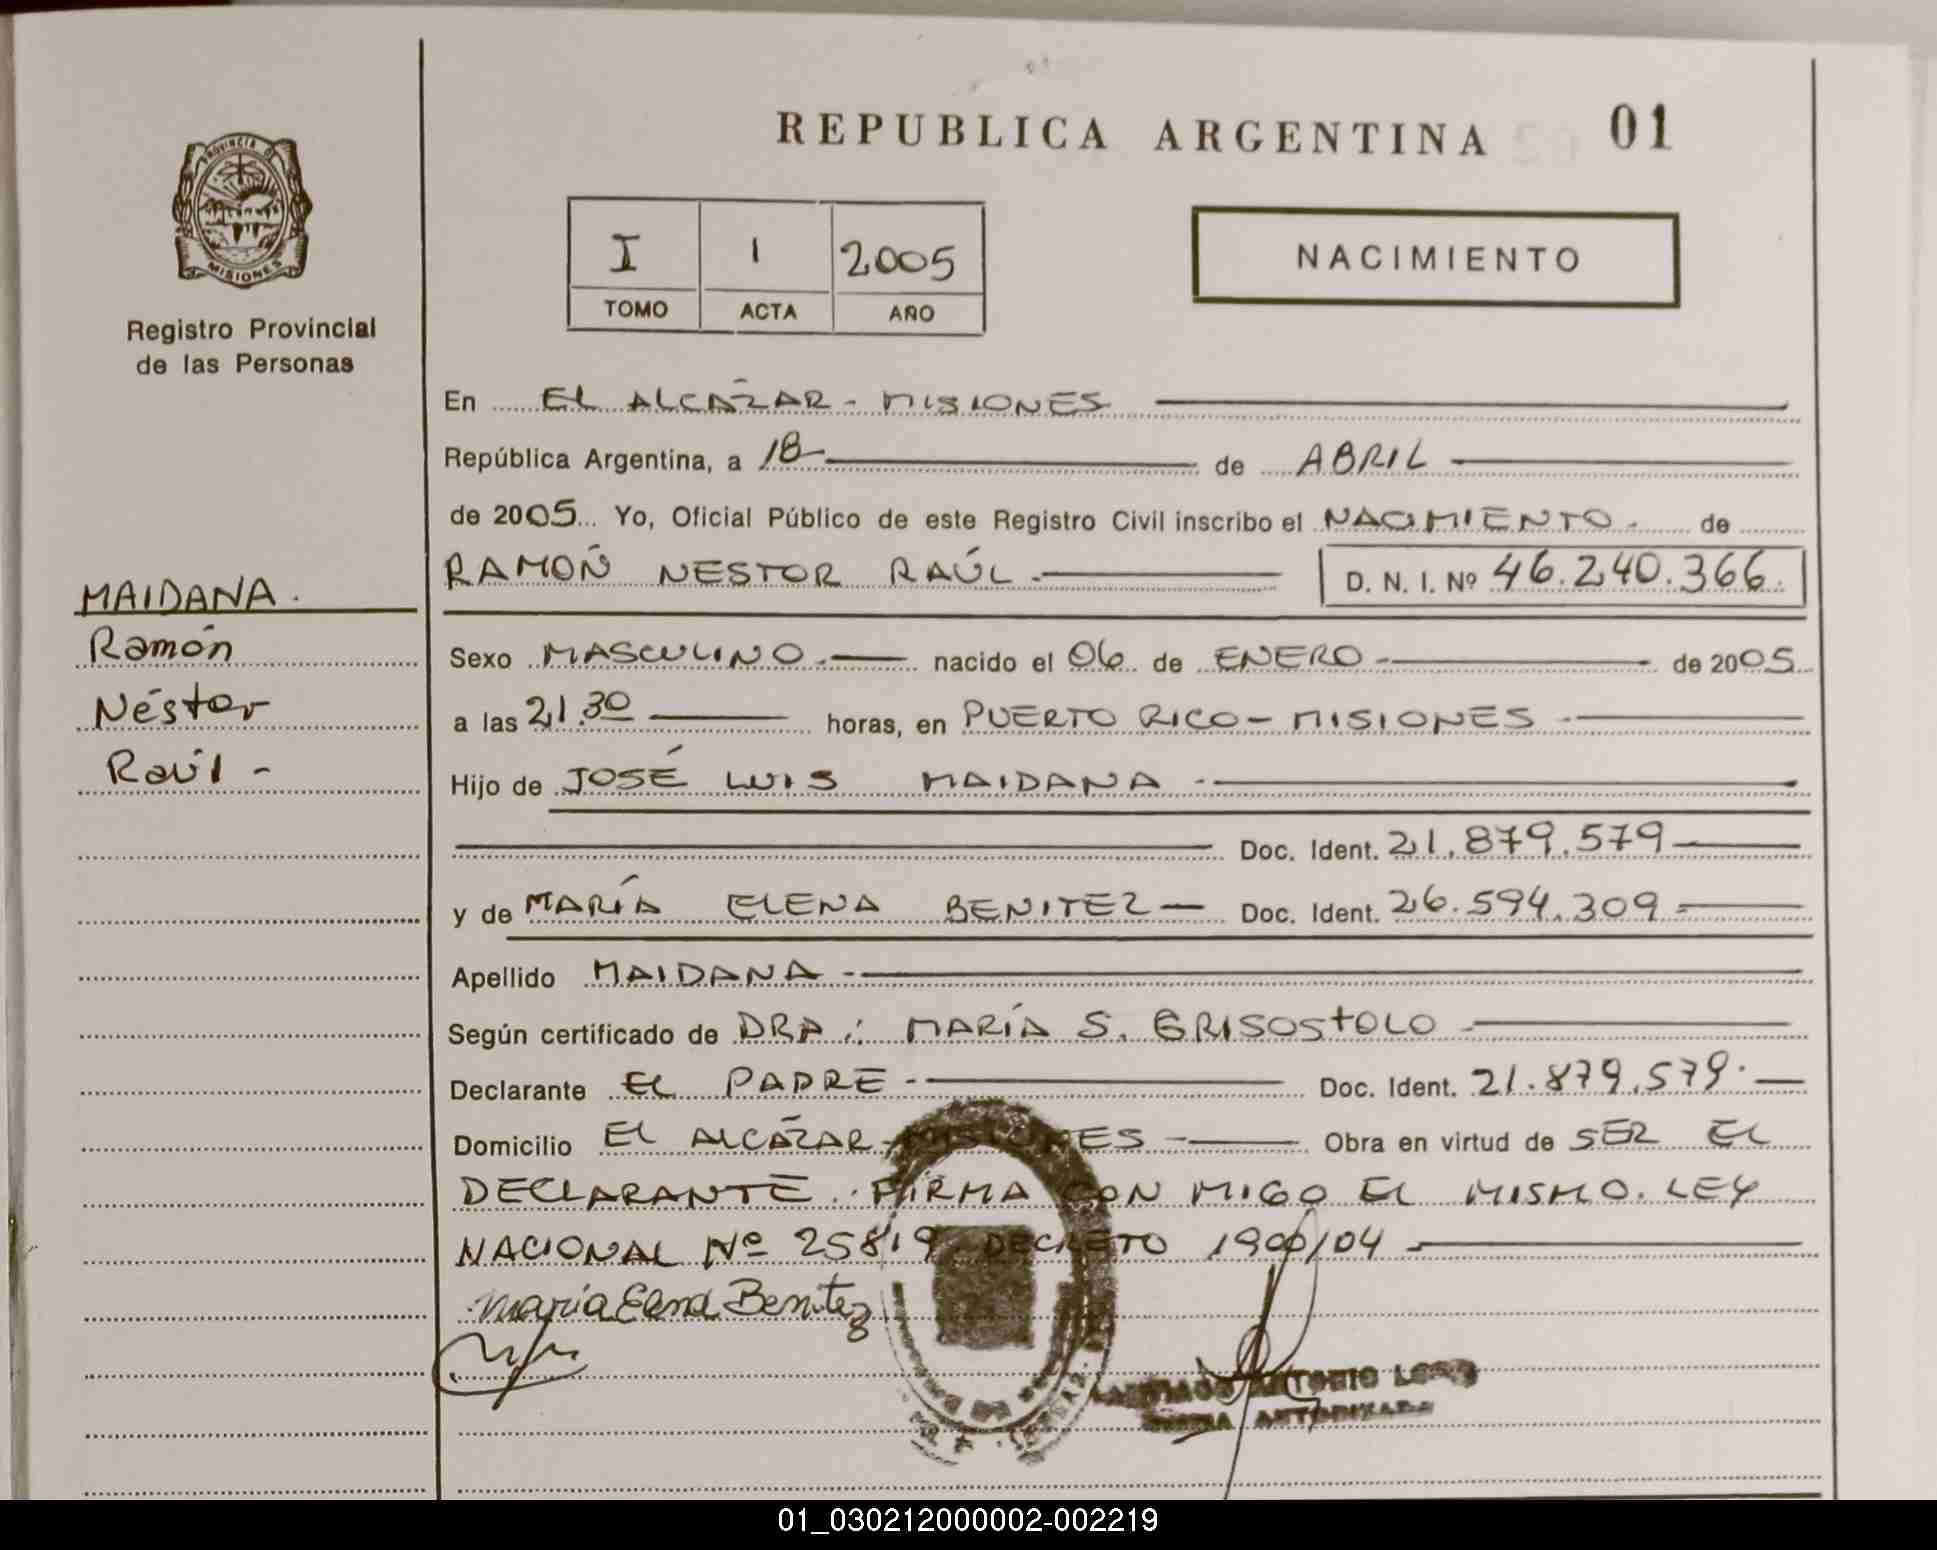 REPUBLICA ARGENTINA 01
PROVINCIA DE
MISIONES
Registro Provincial
de las Personas
I 1 2005
TOMO ACTA AÑO
NACIMIENTO
En EL ALCÁZAR - MISIONES
República Argentina, a 18 de ABRIL
de 2005 Yo, Oficial Público de este Registro Civil inscribo el NACIMIENTO - de
RAMÓN NESTOR RAÚL - D. N. I. Nº 46.240.366.
MAIDANA.
Ramón
Néstor
Raúl -
Sexo MASCULINO - nacido el 06 de ENERO - de 2005
a las 21.30 horas, en PUERTO RICO - MISIONES -
Hijo de JOSÉ LUIS MAIDANA -
Doc. Ident. 21.879.579
y de MARÍA ELENA BENITEZ - Doc. Ident. 26.594.309 -
Apellido MAIDANA -
Según certificado de DRA: MARÍA S. GRISOSTOLO -
Declarante EL PADRE - Doc. Ident. 21.879.579. -
Domicilio EL ALCÁZAR - MISIONES - Obra en virtud de SER EL
DECLARANTE. FIRMA CON MIGO EL MISMO. LEY
NACIONAL Nº 25819 DECRETO 1900/04 -
Maria Elena Benitez
ANTONIO
FIRMA AUTORIZADA
01_030212000002-002219